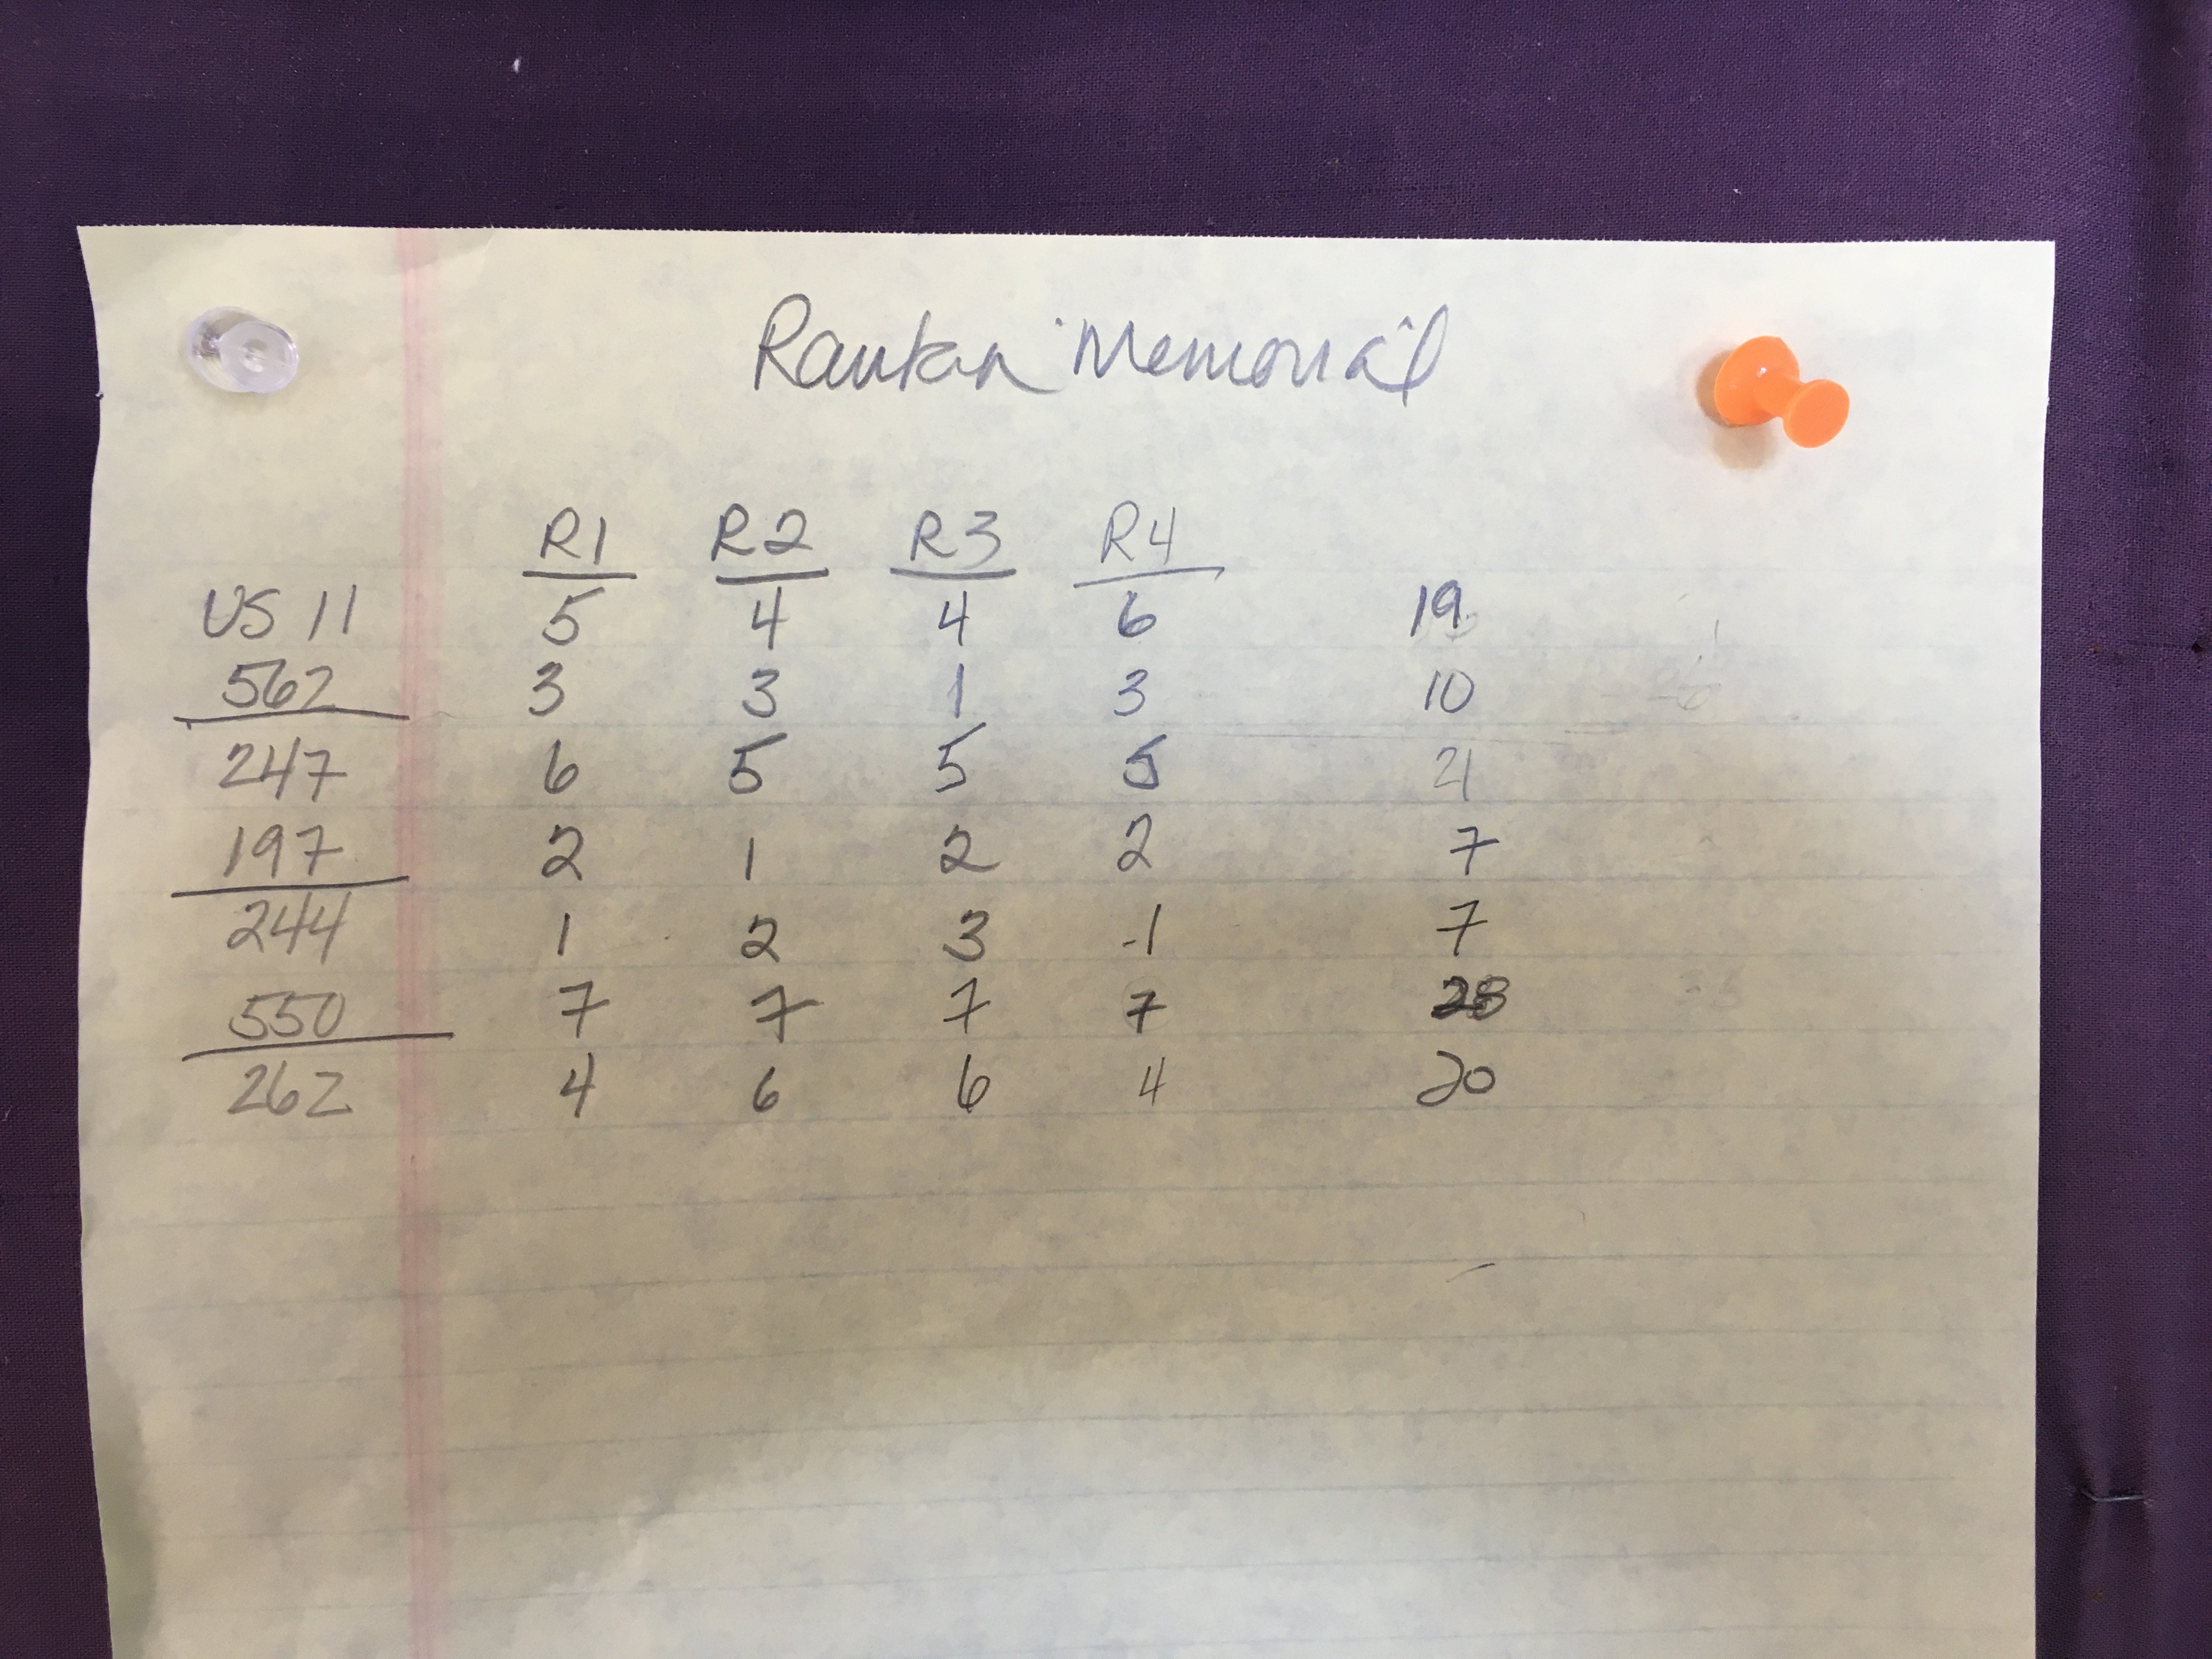 Rankin Memorial
R1 R2 R3 R4
US 11 5 4 4 6 19
562 3 3 1 3 10
247 6 5 5 5 21
197 2 1 2 2 7
244 1 2 3 1 7
550 7 7 7 7 28
262 4 6 6 4 20